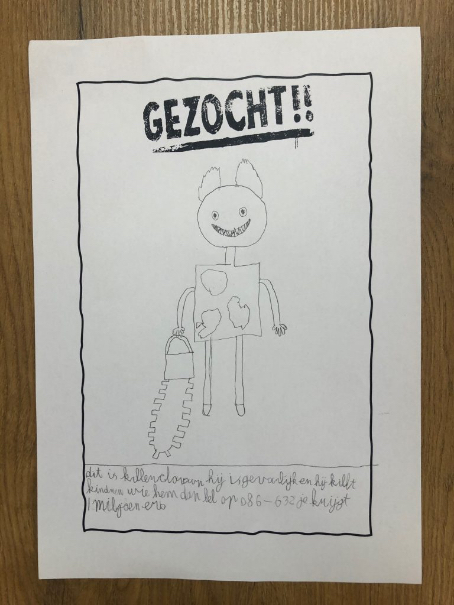 GEZOCHT!!
dit is killerclown hij is gevaarlijk en hij killt
kinderen wie hem dan bel op 086-632 je krijgt
1 miljoen